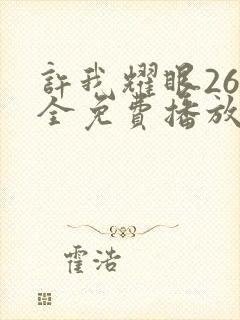 許我耀眼26
全免費播放
霍浩